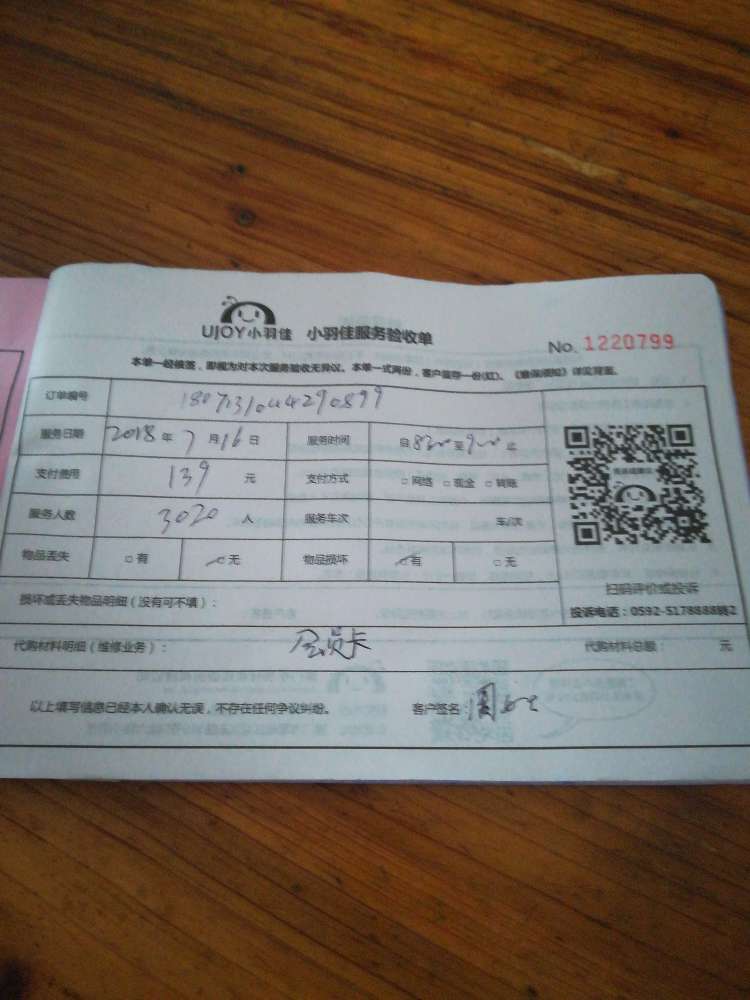 UJOY小羽佳 小羽佳服务验收单
No. 1220799
本单一经核签，即视为对本次服务验收无异议。本单一式两份，客户留存一份(红)。《敬保须知》详见背面。
订单编号
服务日期 2018 年 7 月 16 日 服务时间 自 830 至 900 止
支付费用 139 元 支付方式 □ 网络 □ 现金 □ 转账
服务人数 3020 人 服务车次 车/次
物品丢失 □ 有 □ 无 物品损坏 □ 有 □ 无
扫码评价或投诉
损坏或丢失物品明细（没有可不填）：
投诉电话：0592-5178888转2
代购材料明细（维修业务）： 会员卡 代购材料总额： 元
以上填写信息已经本人确认无误，不存在任何争议纠纷。 客户签名：周